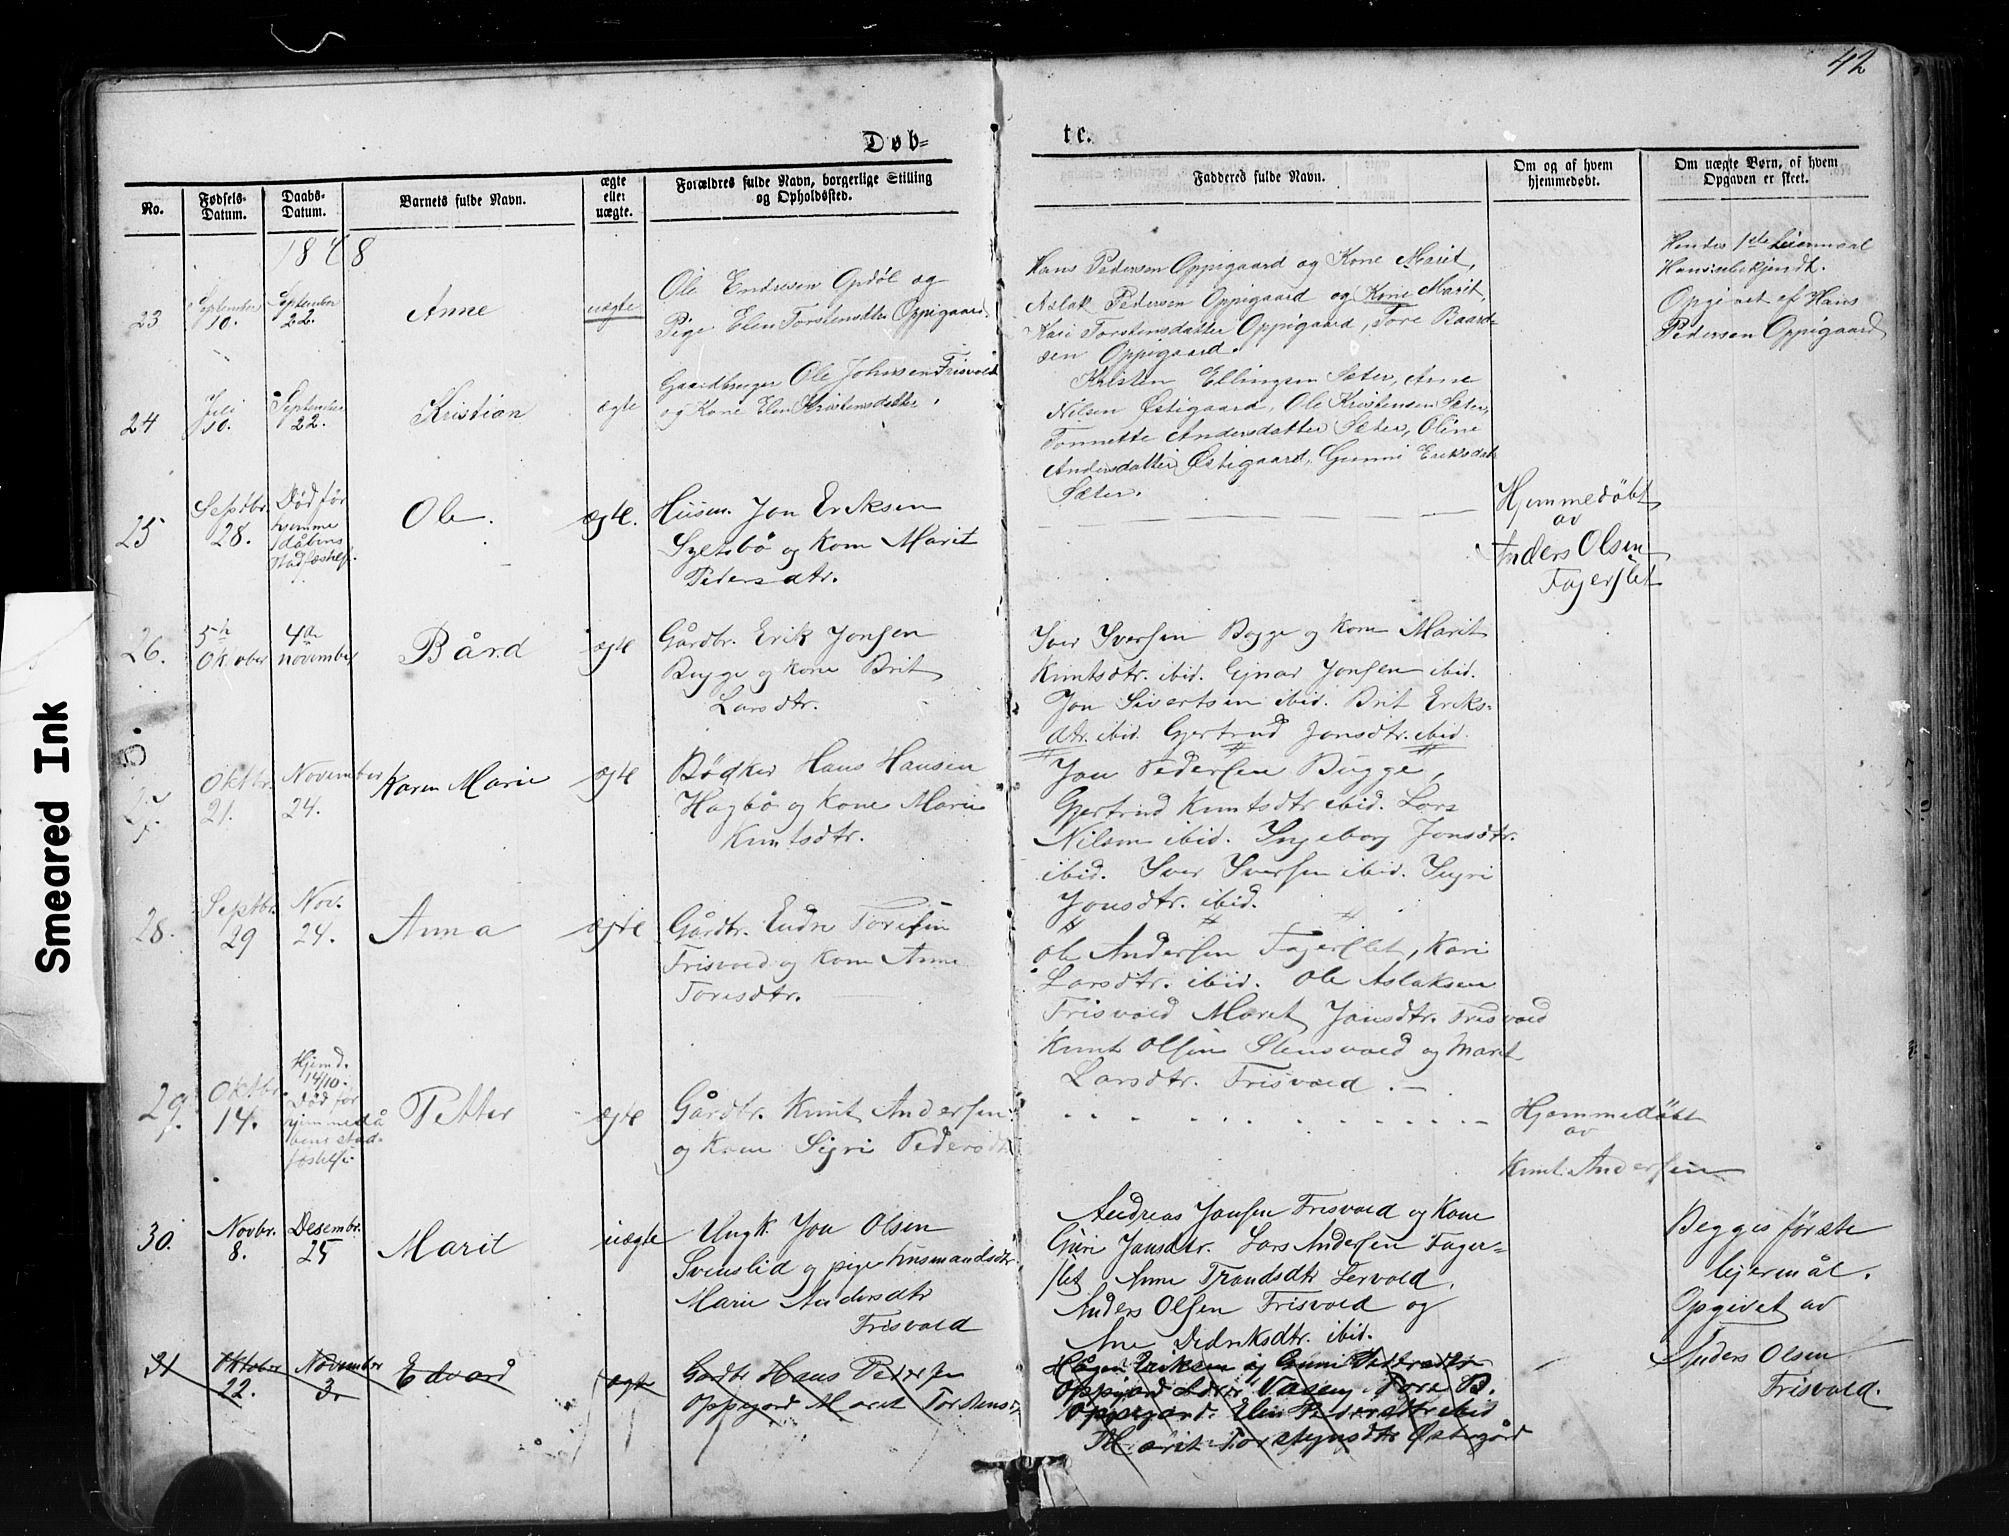 42
Døb-
te.
No.
Fødsels-Datum.
Daabs-Datum.
Barnets fulde Navn.
ægte eller uægte.
Forældres fulde Navn, borgerlige Stilling
og Opholdssted.
Faddernes fulde Navn.
Om og af hvem
hjemmedøbt.
Om uægte Børn, af hvem
Opgaven er skeet.
18 8
23
September 10.
September 22.
Anne
uægte
Ole Endresen Opdøl og
Pige Elen Torstensdtr Oppigaard.
Hans Pedersen Oppigaard og Kone Marit,
Aslak Pedersen Oppigaard og Kone Marit,
Kari Torstensdatter Oppigaard, Tore Baard-
sen Oppigaard.
Hendes 1ste Leiermaal
Hans ubekjendt.
Opgivet af Hans
Pedersen Oppigaard
24
Juli 10.
September 22.
Kristian
ægte
Gaardbruger Ole Johnsen Frisvold
og Kone Elen Kristensdatter.
Kristen Ellingsen Sæter, Anne
Nilsen Østigaard, Ole Kristensen Sæter,
Tonnette Andersdatter Sæter, Oline
Andersdatter Østigaard, Gunni Eriksdat
Sæter.
25
Septbr. 28.
Død før
hjemme
dåbens
stadfæstelse
Ole.
ægte.
Husm. Jon Eriksen
Syltebø og kone Marit
Pedersdtr.
Hjemmedøbt
av
Anders Olsen
Fagerslet
26.
5te Oktober
4de november
Bård
ægte
Gårdbr. Erik Jonsen
Bugge og kone Brit
Larsdtr.
Iver Iversen Bugge og kone Marit
Knutsdtr. ibid. Ejnar Jonsen ibid.
Jon Sivertsen ibid. Brit Eriks-
dtr. ibid. Gjertrud Jonsdtr. ibid.
27
Oktbr. 21.
November 24.
Karen Marie
ægte
Bødker Hans Hansen
Hagbø og kone Marie
Knutsdtr.
Jon Pedersen Bugge,
Gjertrud Knutsdtr ibid. Lars
Nilsen ibid. Ingeborg Jonsdtr.
ibid. Iver Iversen ibid. Sigri
Jonsdtr. ibid.
28.
Septbr. 29
Nov. 24.
Anna
ægte
Gårdbr. Endre Toresen
Frisvold og kone Anne
Toresdtr.
Ole Andersen Fagerslet, Kari
Larsdtr. ibid. Ole Aslaksen
Frisvold Maret Jonsdtr. Frisvold
Knut Olsen Stensvold og Marit
Larsdtr. Frisvold.
29.
Oktbr. 14.
Hjemd.
14/10.
Død før
hjemmedå
bens stad-
fæstelse
Petter
ægte
Gårdbr. Knut Andersen
og kone Sigri Pedersdtr
Hjemmedøbt
av
Knut Andersen
30.
Novbr. 8.
Desembr. 25
Marit
uægte
Ungk. Jon Olsen
Svenslid og pige husmandsdtr
Marie Andersdtr
Frisvold
Andreas Jonsen Frisvold og kone
Guri Jonsdtr. Lars Andersen Fager-
slet, Anne Trondsdtr Lervold,
Anders Olsen Frisvold og
Ane Didriksdtr. ibid.
Begges første
lejermål.
Opgivet av
Anders Olsen
Frisvold.
31
Oktober 22.
November 3.
Edvard
ægte
Gårdbr Hans Pedersen
Oppegård Marit Torstens
Hågen Eriksen og Guni Pedersdtr
Oppigård Lærer Vaseng Tore B.
Oppegård. Elen Pedersdtr ibid
Marit Torstensdtr Østigård
Smeared Ink